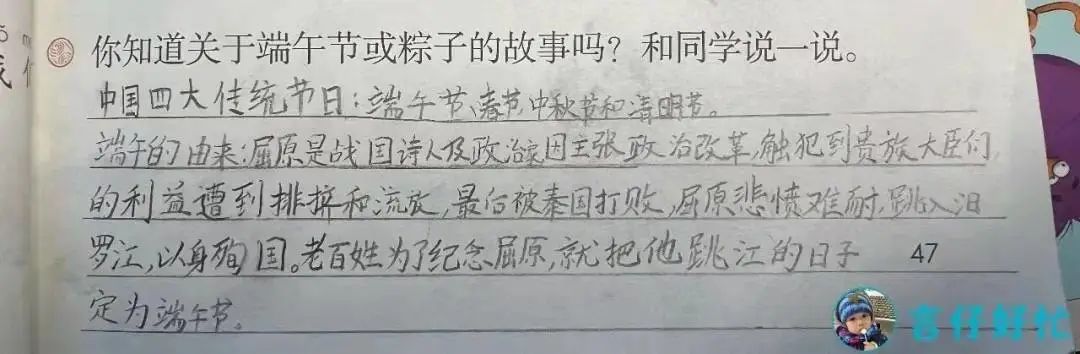 你知道关于端午节或粽子的故事吗？和同学说一说。
中国四大传统节日：端午节、春节、中秋节和清明节。
端午的由来：屈原是战国诗人及政治家因主张政治改革，触犯到贵族大臣们
的利益遭到排挤和流放，最后被秦国打败，屈原悲愤难耐，跳入汨
罗江，以身殉国。老百姓为了纪念屈原，就把他跳江的日子
47
定为端午节。
言仔好忙